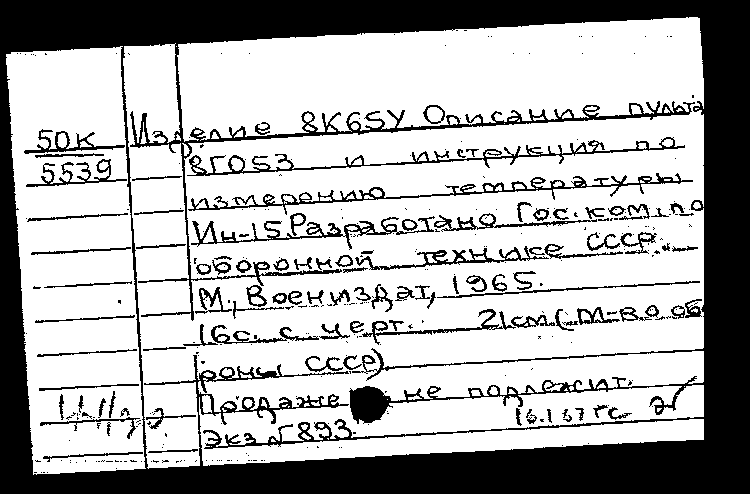 50К
5539
Изделие 8К65У Описание пульта
8Г053 и инструкция по
измерению температуры
Ин-15. Разработано Гос.ком.по
оборонной технике СССР.
М., Воениздат, 1965.
16с. с черт. 21см (М-во обо
роны СССР)
Продаже не подлежит.
Экз № 893.